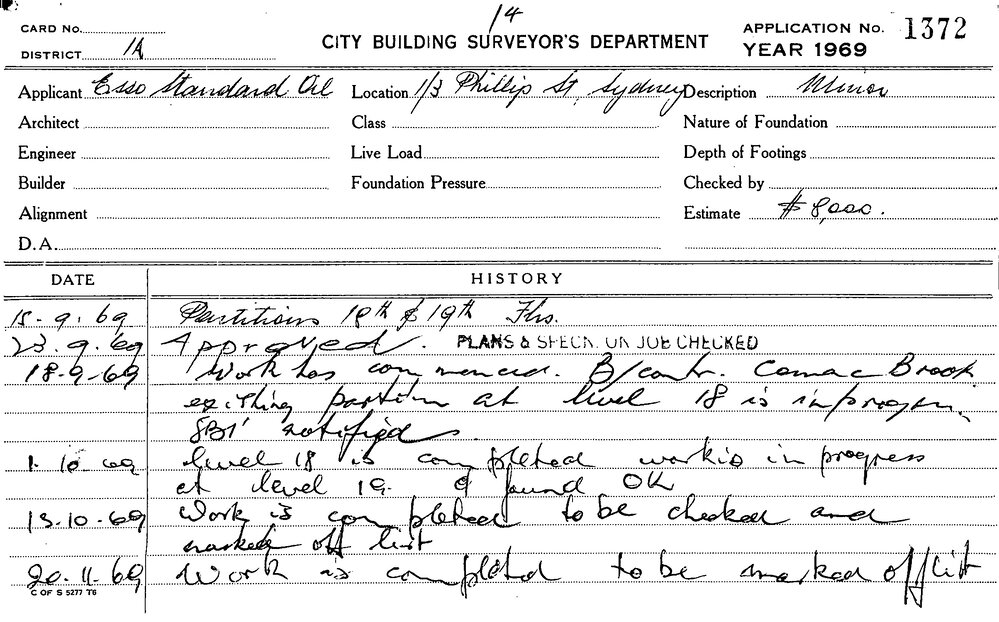 14
CARD No.
DISTRICT 1A
CITY BUILDING SURVEYOR'S DEPARTMENT
APPLICATION No. 1372
YEAR 1969
Applicant Esso Standard Oil Location 1/3 Phillip St, Sydney Description Minor
Architect Class Nature of Foundation
Engineer Live Load Depth of Footings
Builder Foundation Pressure Checked by
Alignment Estimate $8,000.
D.A.
DATE HISTORY
15.9.69 Partitions 18th & 19th Flrs.
23.9.69 Approved. PLANS & SPECN. ON JOB CHECKED
18-9-69 Work has commenced. B/contr. Comac Brook
partition at level 18 is in progress.
notified
1.10.69 level 18 is completed work is in progress
at level 19. & found OK
13.10.69 Work is completed to be checked and
marked off list
20.11.69 Work is completed to be marked off list
C OF S 5277 T6